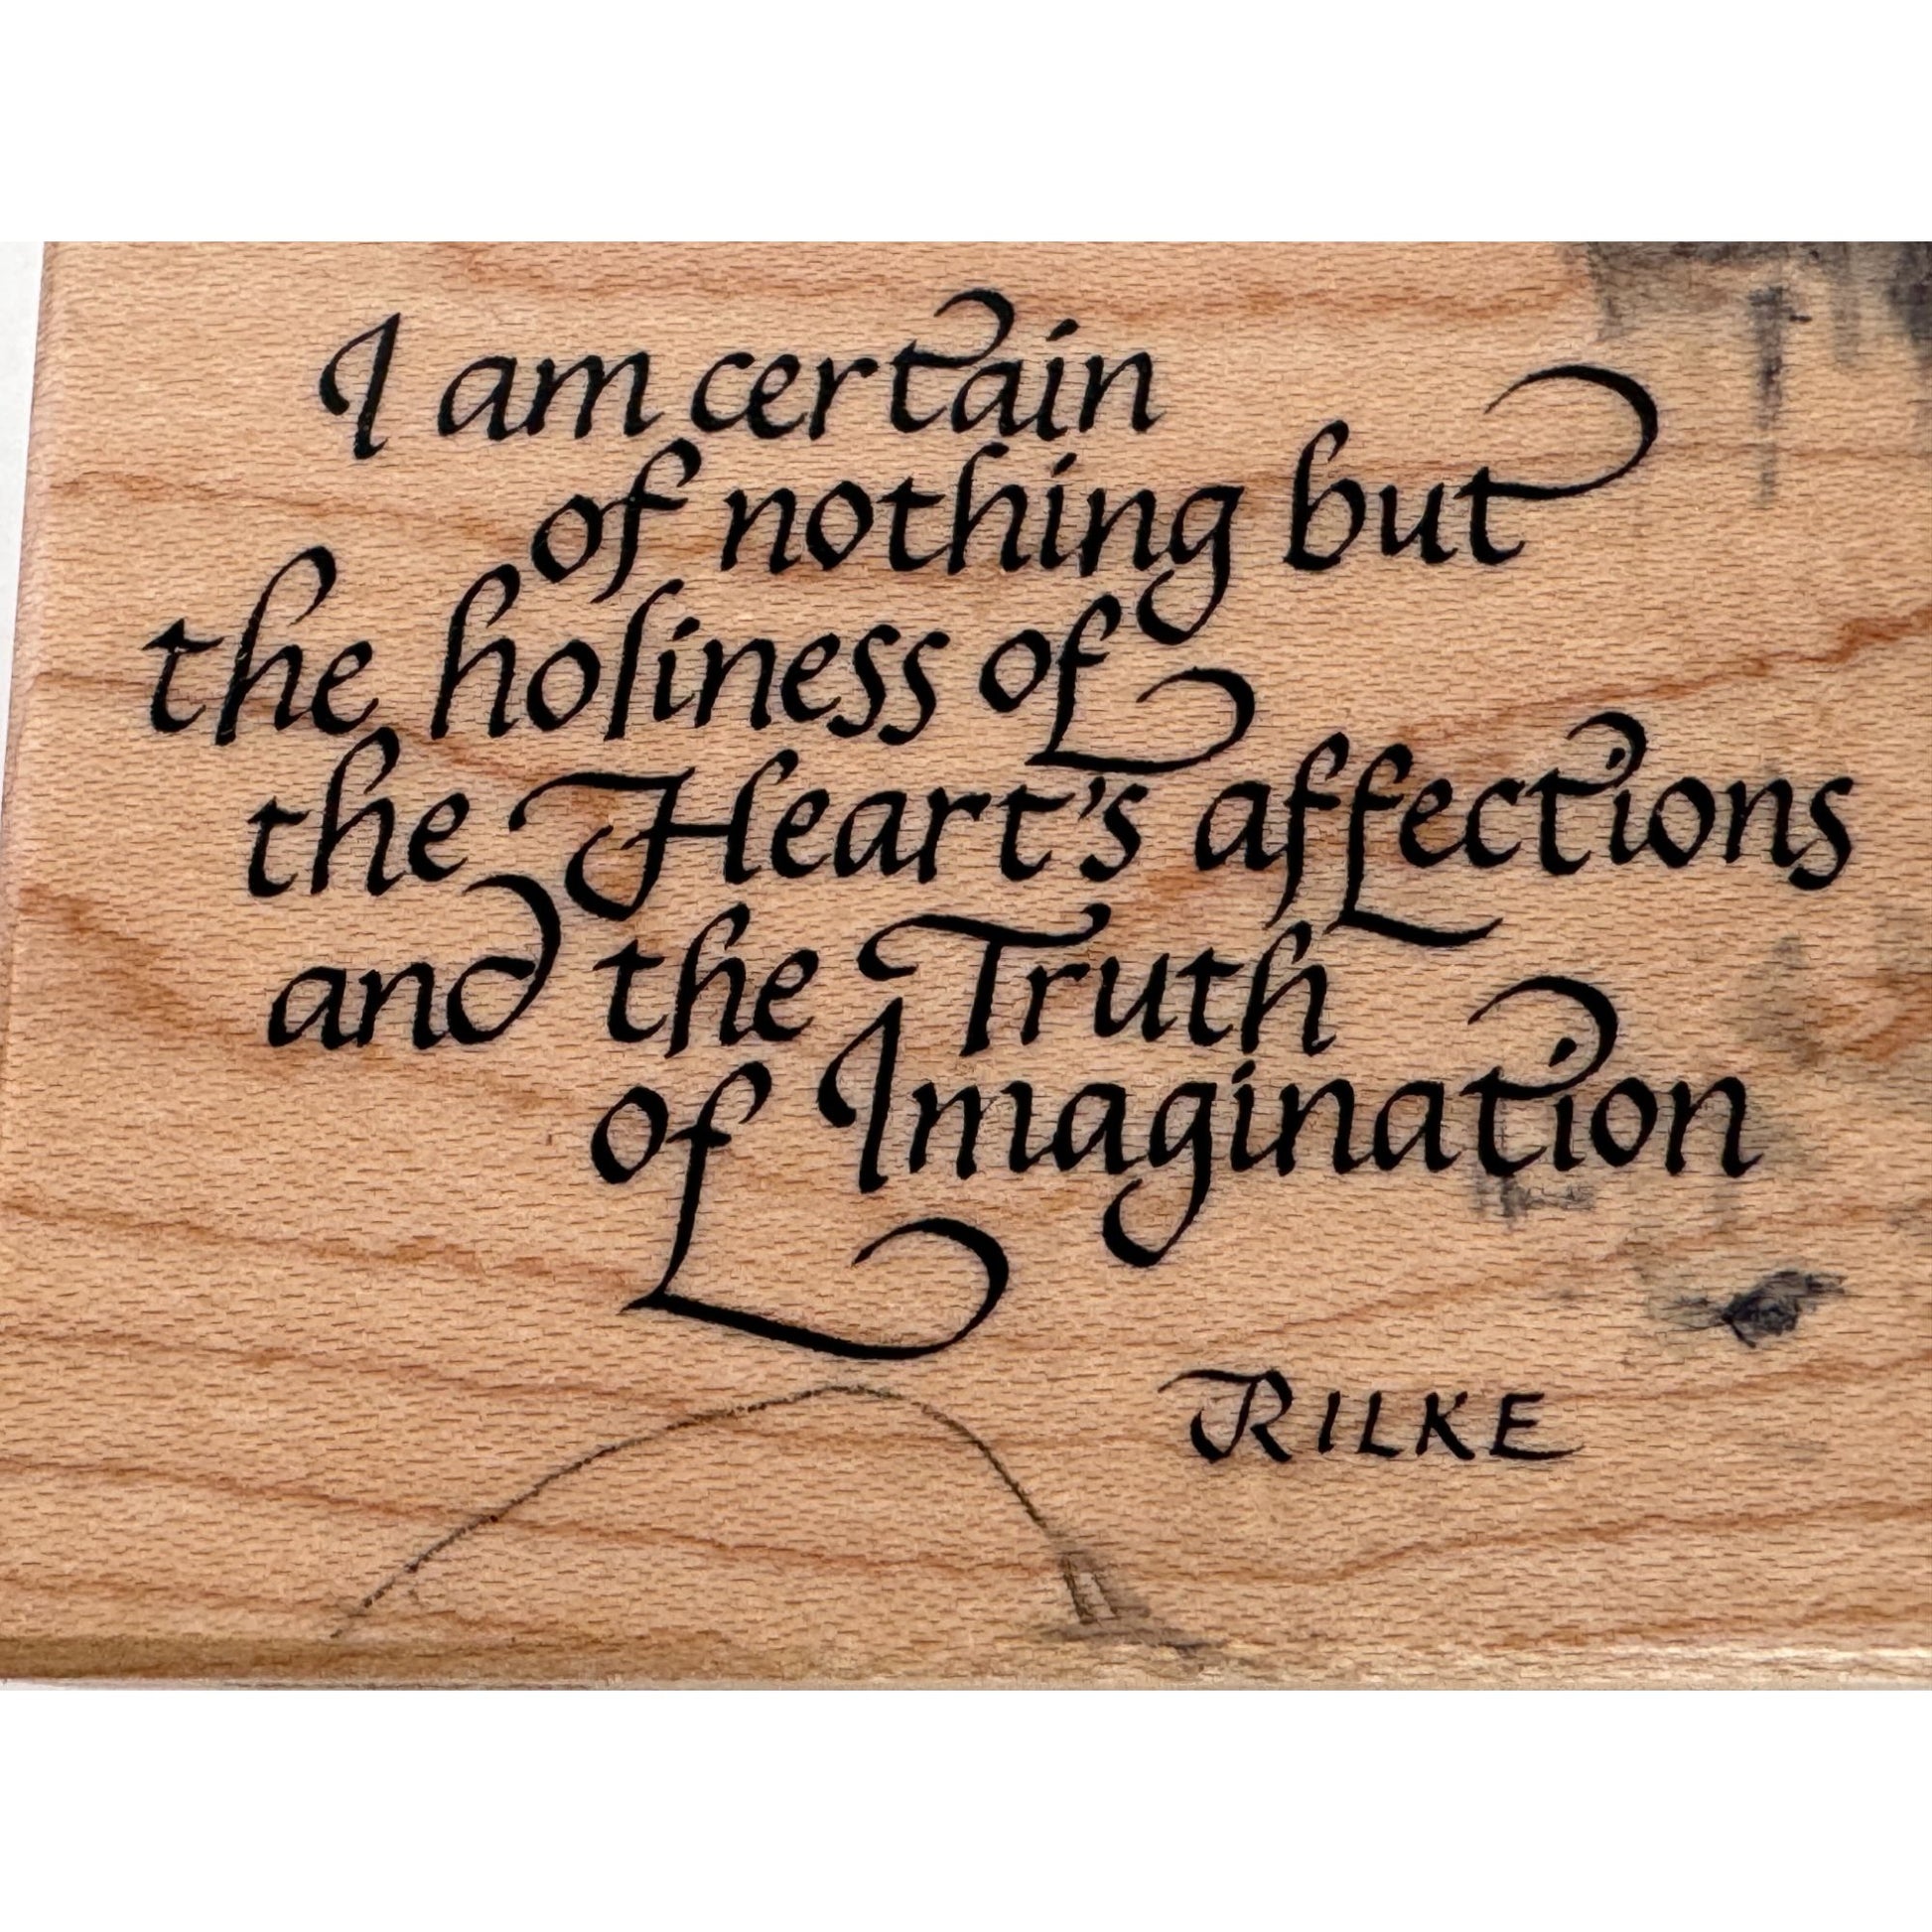 I am certain
of nothing but
the holiness of
the Heart's affections
and the Truth
of Imagination
RILKE